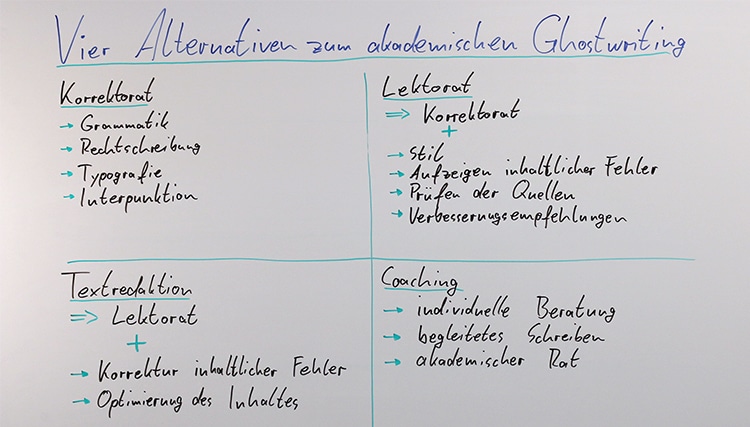 Vier Alternativen zum akademischen Ghostwriting
Korrektorat
→ Grammatik
→ Rechtschreibung
→ Typografie
→ Interpunktion
Lektorat
⇒ Korrektorat
+
→ Stil
→ Aufzeigen inhaltlicher Fehler
→ Prüfen der Quellen
→ Verbesserungsempfehlungen
Textredaktion
⇒ Lektorat
+
→ Korrektur inhaltlicher Fehler
→ Optimierung des Inhaltes
Coaching
→ individuelle Beratung
→ begleitetes Schreiben
→ akademischer Rat